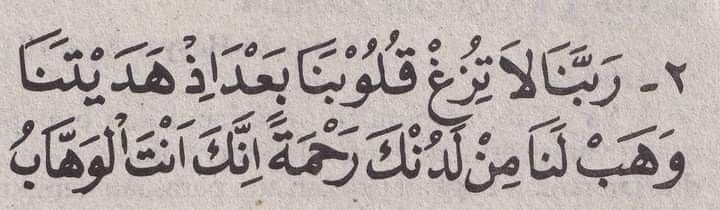 ٢ - رَبَّنَا لَا تُزِغْ قُلُوْبَنَا بَعْدَ اِذْ هَدَيْتَنَا
وَهَبْ لَنَا مِنْ لَدُنْكَ رَحْمَةً اِنَّكَ اَنْتَ الْوَهَّابُ